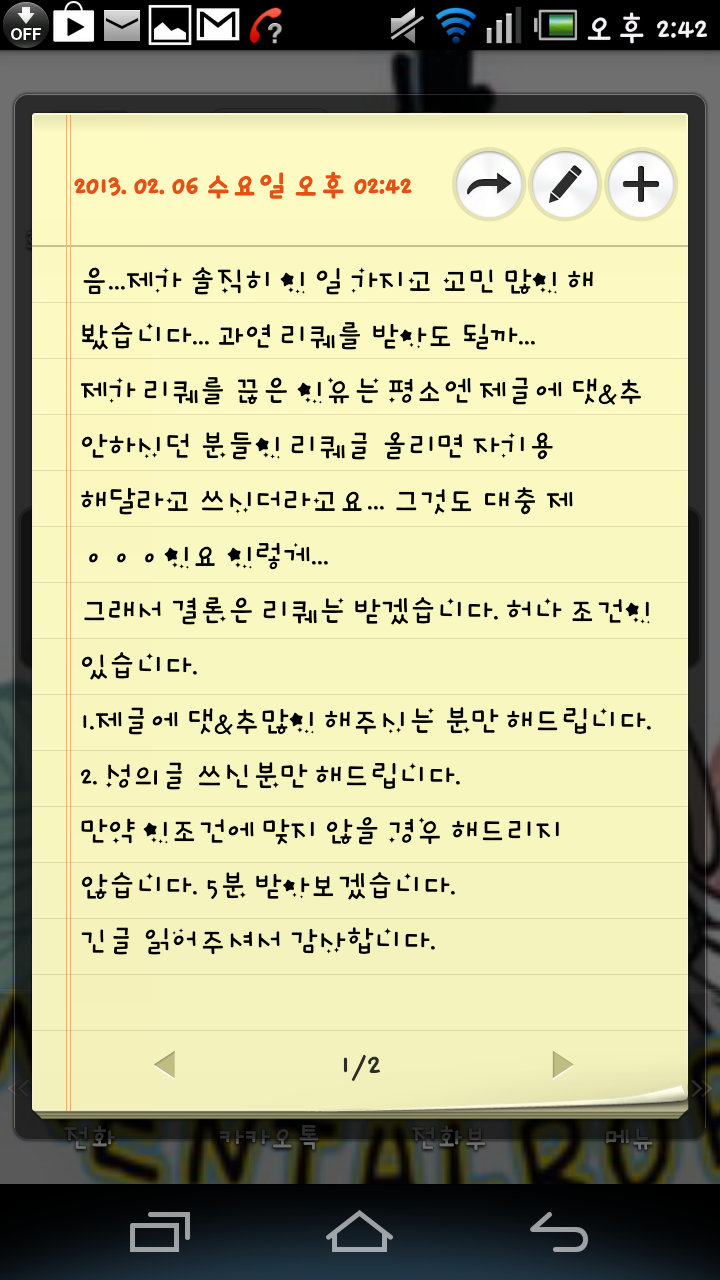 OFF 오후 2:42
2013. 02. 06 수요일 오후 02:42
음...제가 솔직히 이 일 가지고 고민 많이 해
봤습니다... 과연 리퀘를 받아도 될까...
제가 리퀘를 끊은 이유는 평소엔 제글에 댓&추
안하시던 분들이 리퀘글 올리면 자기용
해달라고 쓰시더라고요... 그것도 대충 제
ㅇ ㅇ ㅇ이요 이렇게...
그래서 결론은 리퀘는 받겠습니다. 허나 조건이
있습니다.
1.제글에 댓&추많이 해주시는 분만 해드립니다.
2. 성의글 쓰신분만 해드립니다.
만약 이조건에 맞지 않을 경우 해드리지
않습니다. 5분 받아보겠습니다.
긴글 읽어주셔서 감사합니다.
1/2
전화 카카오톡 전화부 메뉴